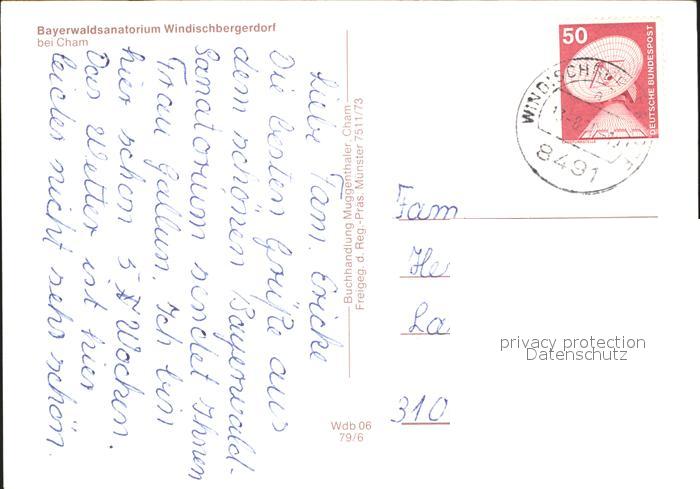 Bayerwaldsanatorium Windischbergerdorf
bei Cham
Liebe Fam. Ericke
Die besten Grüße aus
dem schönen Bayerwald-
Sanatorium sendet Ihnen
Frau Gallun. Ich bin
hier schon 5 Wochen.
Das Wetter ist hier
leider nicht sehr schön.
Buchhandlung Muggenthaler, Cham
Freigeg. d. Reg.-Präs. Münster 7511/73
Wdb 06
79/6
50
DEUTSCHE BUNDESPOST
8491
Fam
He
La
310
privacy protection
Datenschutz